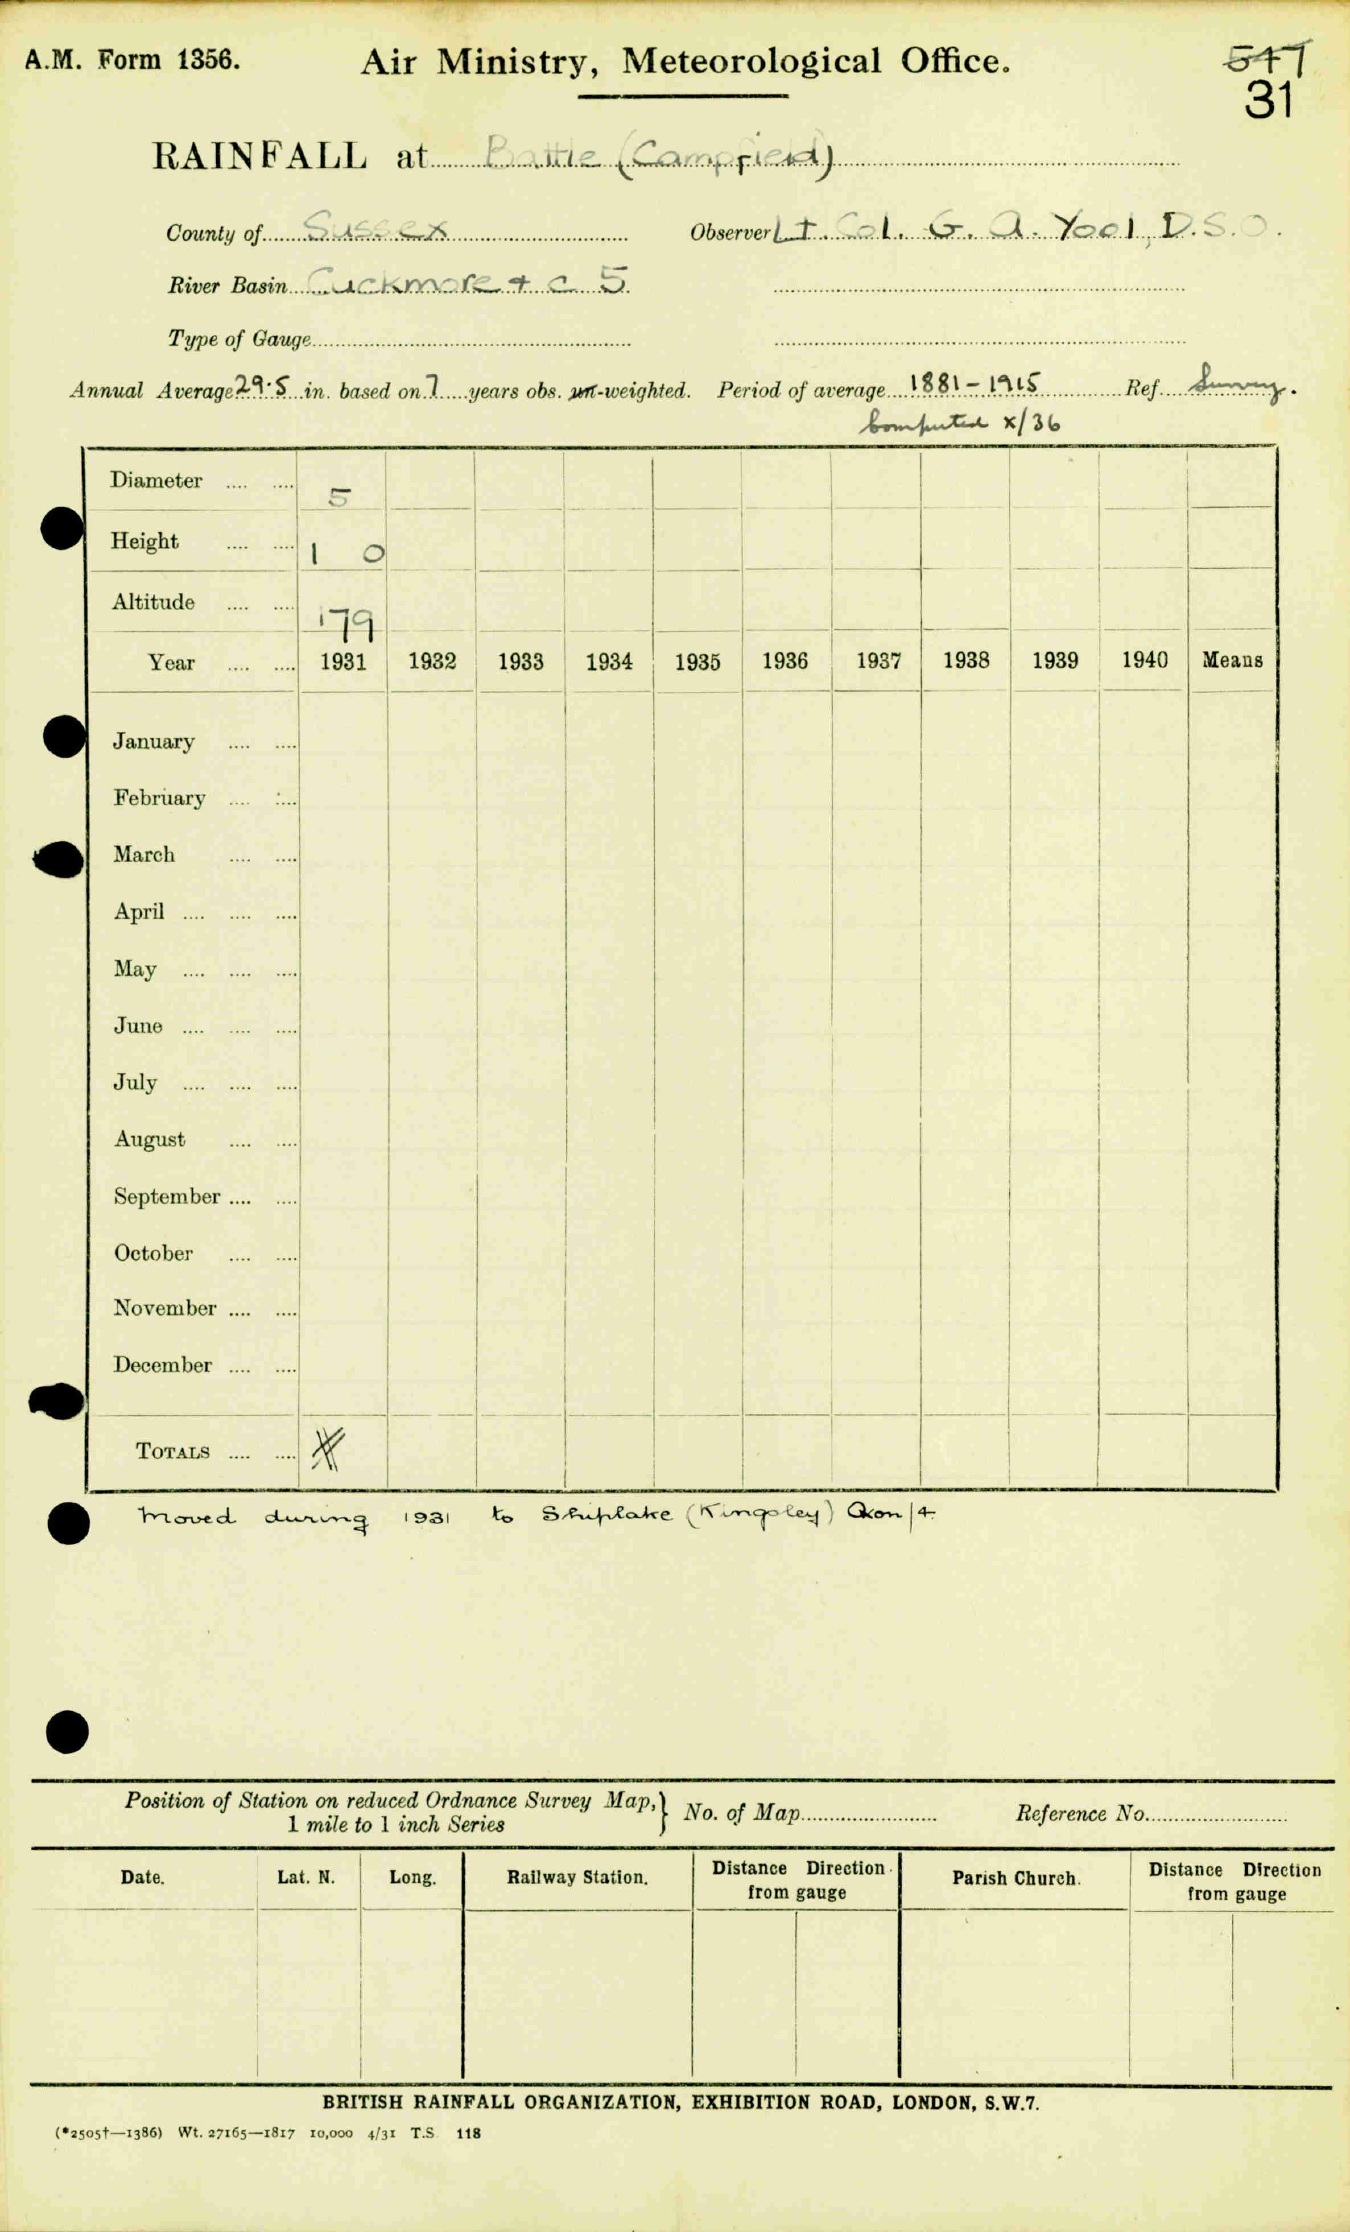 A.M. Form 1356. Air Ministry, Meteorological Office. 547
31
RAINFALL at Battle (Campfield)
County of Sussex Observer Lt. Col. G. A. Yool, D.S.O.
River Basin Cuckmore + c 5
Type of Gauge
Annual Average 29.5 in. based on 7 years obs. un-weighted. Period of average 1881-1915 Ref. Survey.
Computed x/36
Diameter .... .... 5
Height .... .... 1 0
Altitude .... .... 179
Year .... .... 1931 1932 1933 1934 1935 1936 1937 1938 1939 1940 Means
January .... ....
February .... ....
March .... ....
April .... .... ....
May .... .... ....
June .... .... ....
July .... .... ....
August .... ....
September .... ....
October .... ....
November .... ....
December .... ....
TOTALS .... ....
Moved during 1931 to Shiplake (Kingsley) Oxon/4.
Position of Station on reduced Ordnance Survey Map, } No. of Map Reference No.
1 mile to 1 inch Series
Date. Lat. N. Long. Railway Station. Distance Direction from gauge Parish Church. Distance Direction from gauge
BRITISH RAINFALL ORGANIZATION, EXHIBITION ROAD, LONDON, S.W.7.
(*2505†—1386) Wt. 27165—1817 10,000 4/31 T.S. 118